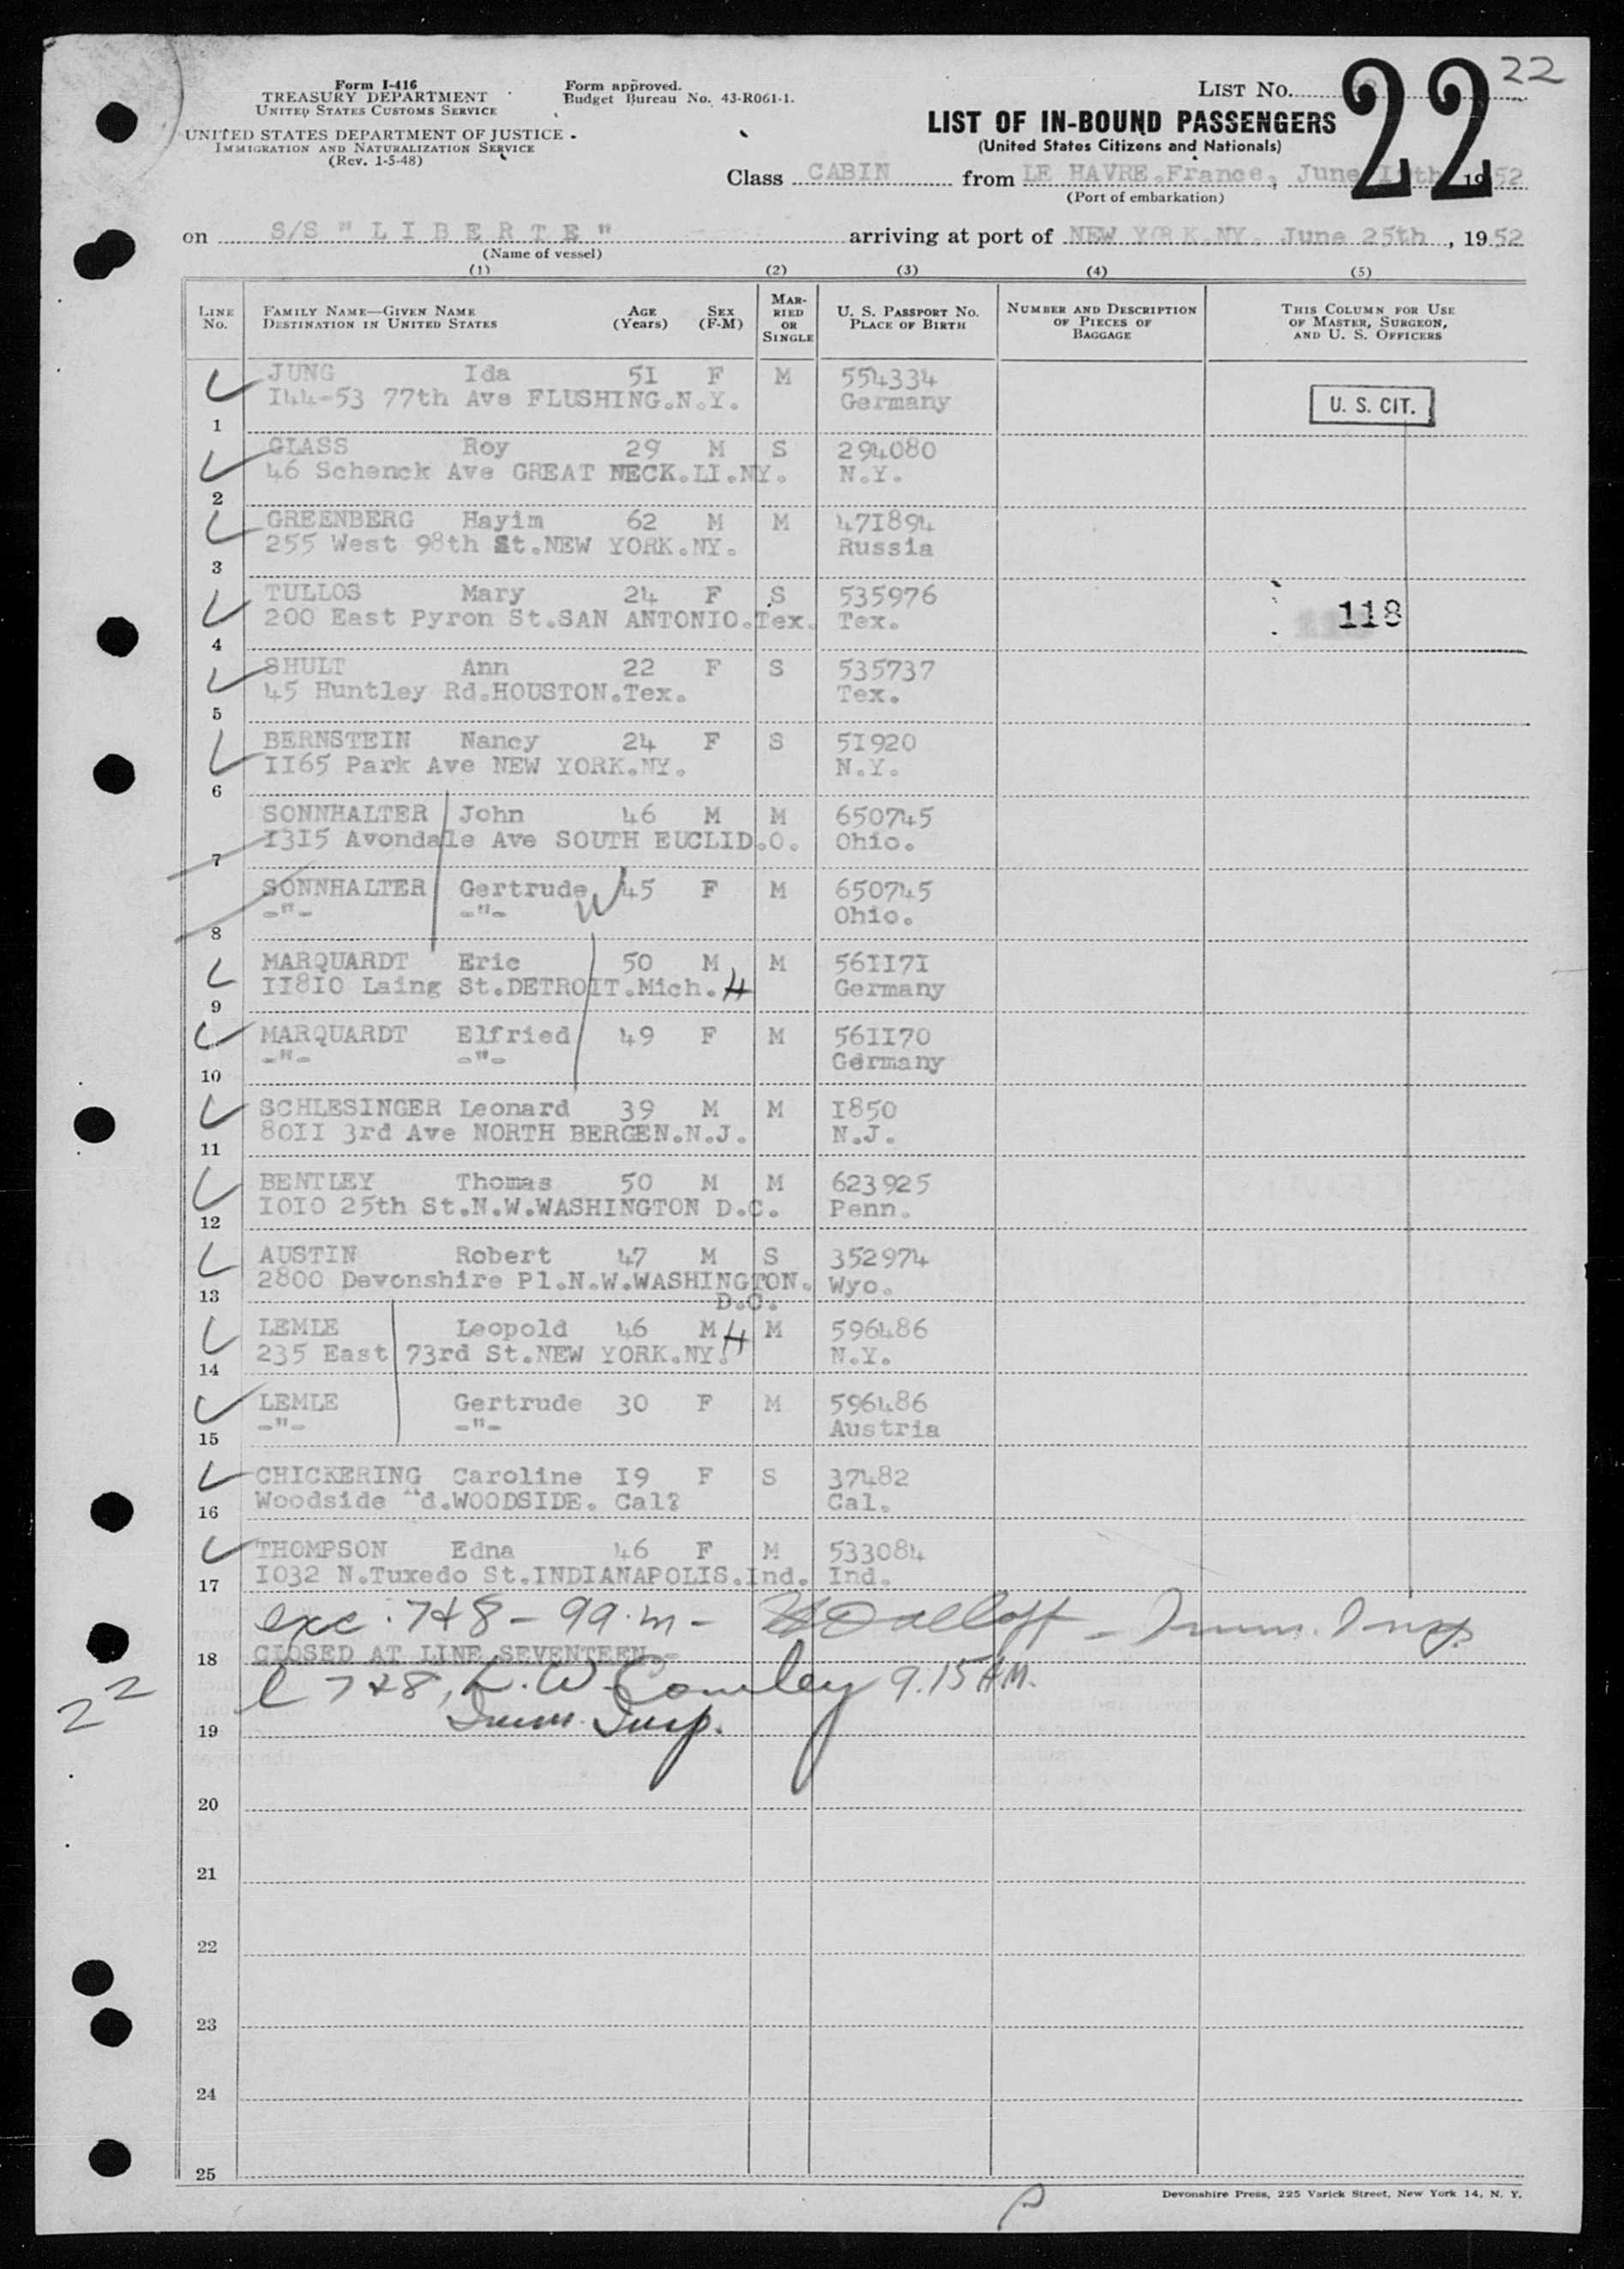 Form I-416
TREASURY DEPARTMENT
UNITED STATES CUSTOMS SERVICE
UNITED STATES DEPARTMENT OF JUSTICE
IMMIGRATION AND NATURALIZATION SERVICE
(Rev. 1-5-48)
Form approved.
Budget Bureau No. 43-R061-1.
LIST No. 22 22
LIST OF IN-BOUND PASSENGERS
(United States Citizens and Nationals)
Class CABIN from LE HAVRE.France, June 19 52
(Port of embarkation)
on S/S " L I B E R T E " arriving at port of NEW YORK.NY. June 25th , 19 52
(Name of vessel)
(1) (2) (3) (4) (5)
LINE No. FAMILY NAME—GIVEN NAME DESTINATION IN UNITED STATES AGE (Years) SEX (F-M) MARRIED OR SINGLE U. S. PASSPORT No. PLACE OF BIRTH NUMBER AND DESCRIPTION OF PIECES OF BAGGAGE THIS COLUMN FOR USE OF MASTER, SURGEON, AND U. S. OFFICERS
JUNG Ida 51 F M 554334
I44-53 77th Ave FLUSHING.N.Y. Germany U. S. CIT.
1
GLASS Roy 29 M S 294080
46 Schenck Ave GREAT NECK.LI.NY. N.Y.
2
GREENBERG Hayim 62 M M 47I894
255 West 98th St.NEW YORK.NY. Russia
3
TULLOS Mary 24 F S 535976
200 East Pyron St.SAN ANTONIO.Tex. Tex. 118
4
SHULT Ann 22 F S 535737
45 Huntley Rd.HOUSTON.Tex. Tex.
5
BERNSTEIN Nancy 24 F S 5I920
II65 Park Ave NEW YORK.NY. N.Y.
6
SONNHALTER John 46 M M 650745
I3I5 Avondale Ave SOUTH EUCLID.O. Ohio.
7
SONNHALTER Gertrude W 45 F M 650745
-"- -"- Ohio.
8
MARQUARDT Eric 50 M M 56II7I
II8IO Laing St.DETROIT.Mich. H Germany
9
MARQUARDT Elfried 49 F M 56II70
-"- -"- Germany
10
SCHLESINGER Leonard 39 M M I850
80II 3rd Ave NORTH BERGEN.N.J. N.J.
11
BENTLEY Thomas 50 M M 623925
IOIO 25th St.N.W.WASHINGTON D.C. Penn.
12
AUSTIN Robert 47 M S 352974
2800 Devonshire Pl.N.W.WASHINGTON. Wyo.
13 D.C.
LEMLE Leopold 46 M H M 596486
235 East 73rd St.NEW YORK.NY. N.Y.
14
LEMLE Gertrude 30 F M 596486
-"- -"- Austria
15
CHICKERING Caroline I9 F S 37482
Woodside d.WOODSIDE. Cal? Cal.
16
THOMPSON Edna 46 F M 533084
I032 N.Tuxedo St.INDIANAPOLIS.Ind. Ind.
17
exc. 7+8 - Imm. Insp.
18 CLOSED AT LINE SEVENTEEN.-
7+8, 9.15 AM.
Imm. Insp.
19
22
20
21
22
23
24
25
Devonshire Press, 225 Varick Street, New York 14, N. Y.